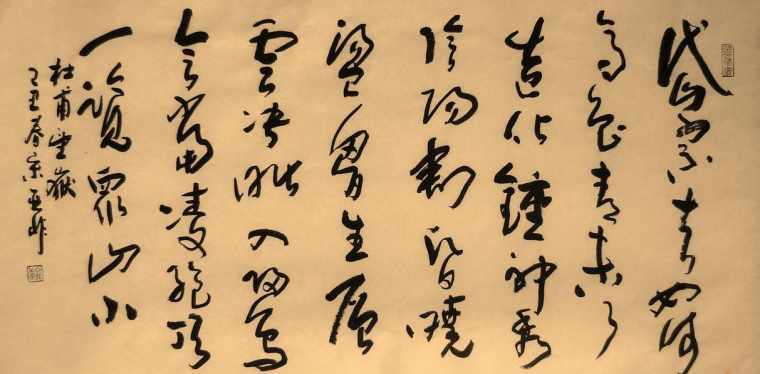 岱宗夫如何
齊魯青未了
造化鍾神秀
陰陽割昏曉
盪胸生層
雲決眦入歸鳥
會當凌絕頂
一覽眾山小
杜甫望嶽
丑春